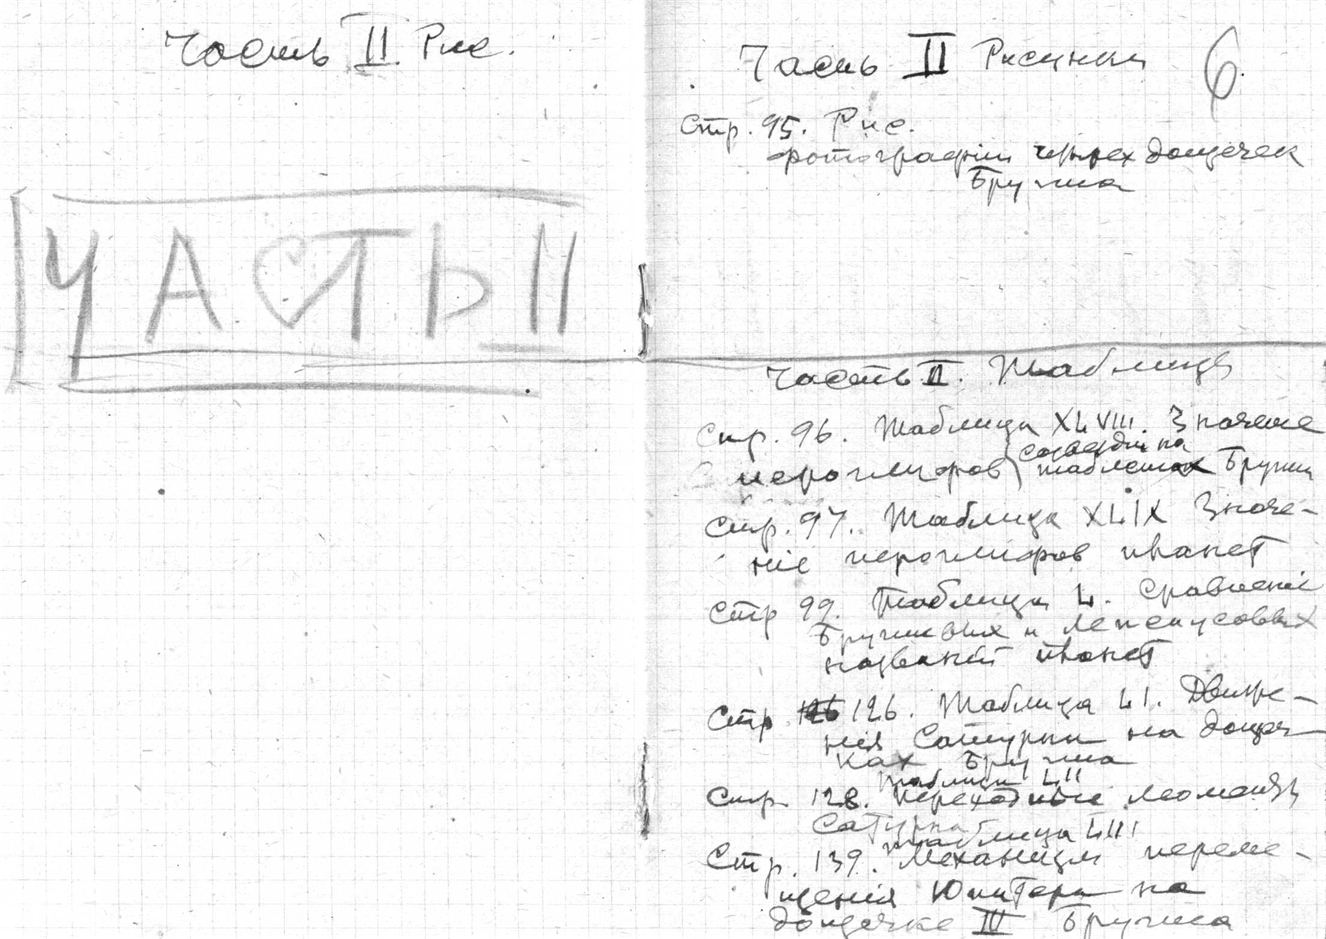 Часть II Рис.
ЧАСТЬ II
Часть II Рисунки
6.
Стр. 95. Рис.
фотографии четырех дощечек
Бругша
Часть II. Таблицы
Стр. 96. Таблица XLVIII. Значение
иероглифов созвездий на
таблетках Бругша
Стр. 97. Таблица XLIX Значе-
ние иероглифов планет
Стр 99. Таблица L. Сравнение
Бругшевых и Лепсиусовых
названий планет
Стр 126. Таблица LI. Движе-
ния Сатурна на дощеч-
ках Бругша
Таблица LII
Стр. 128. Переходные моменты
Сатурна
Таблица LIII
Стр. 139. Механизм переме-
щения Юпитера на
дощечке III Бругша